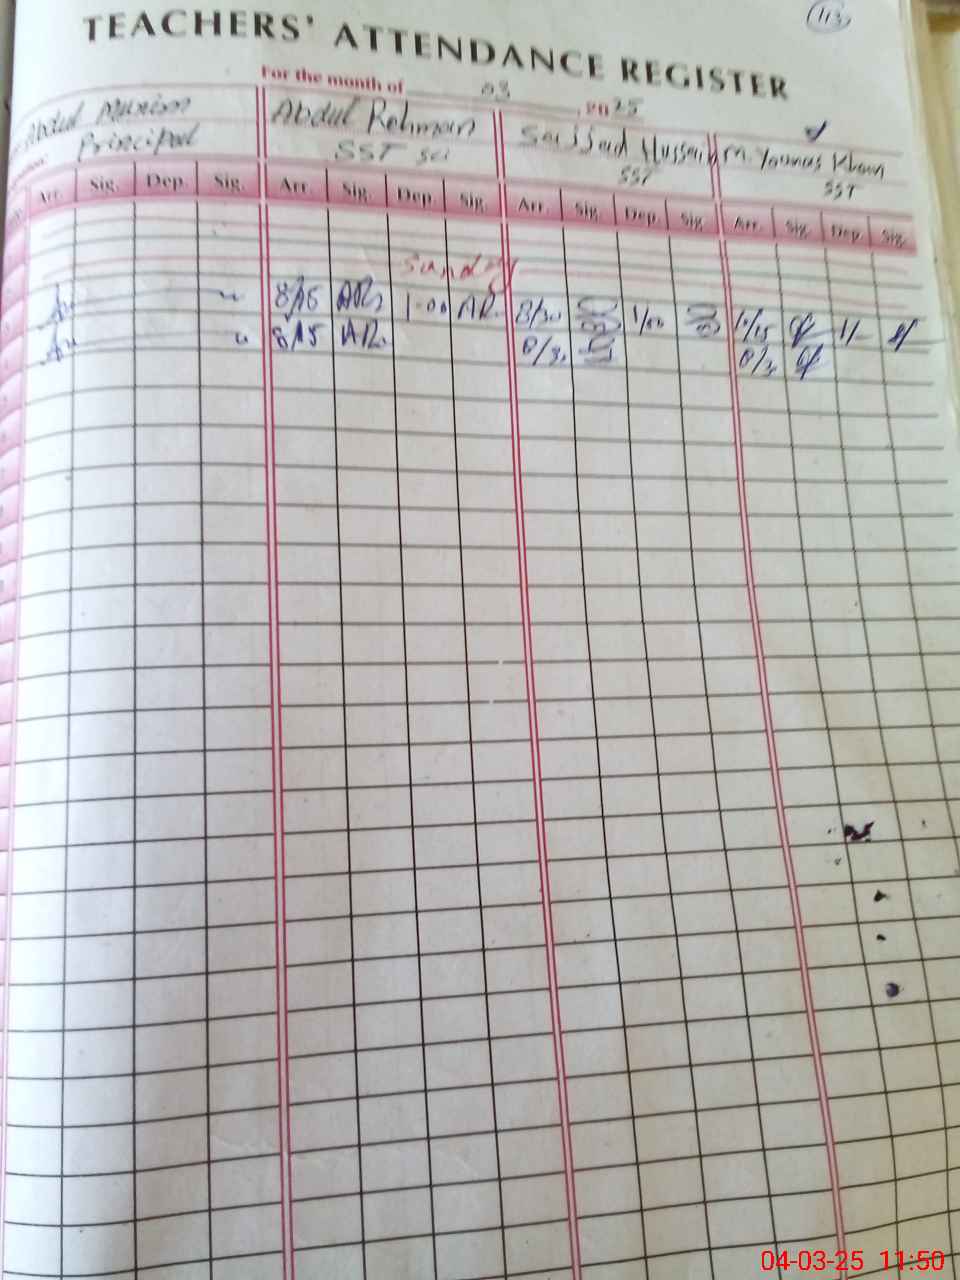 113
TEACHERS' ATTENDANCE REGISTER
For the month of 03, 2025
Abdul Munim Abdul Rehman Sajjad Hussain M. Younas Khan
Principal SST Sci SST SST
Arr. Sig. Dep. Sig. Arr. Sig. Dep. Sig. Arr. Sig. Dep. Sig. Arr. Sig. Dep. Sig.
Sunday
8/15 AR. 1-00 AR. 8/30 1/00 1/-
8/15 AR. 8/30 8/3
04-03-25 11:50